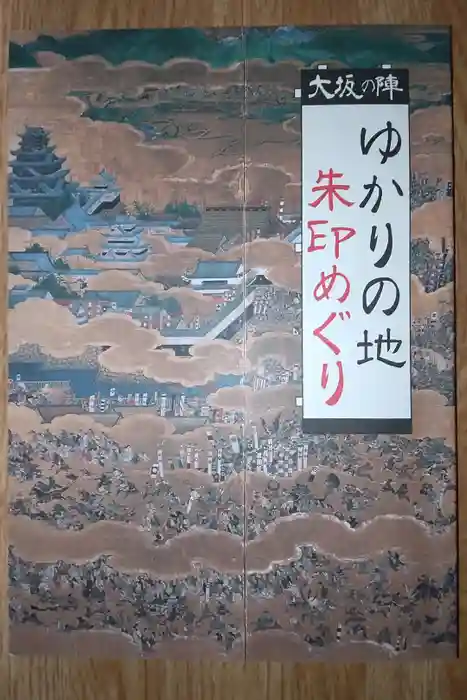 大坂の陣
ゆかりの地
朱印めぐり